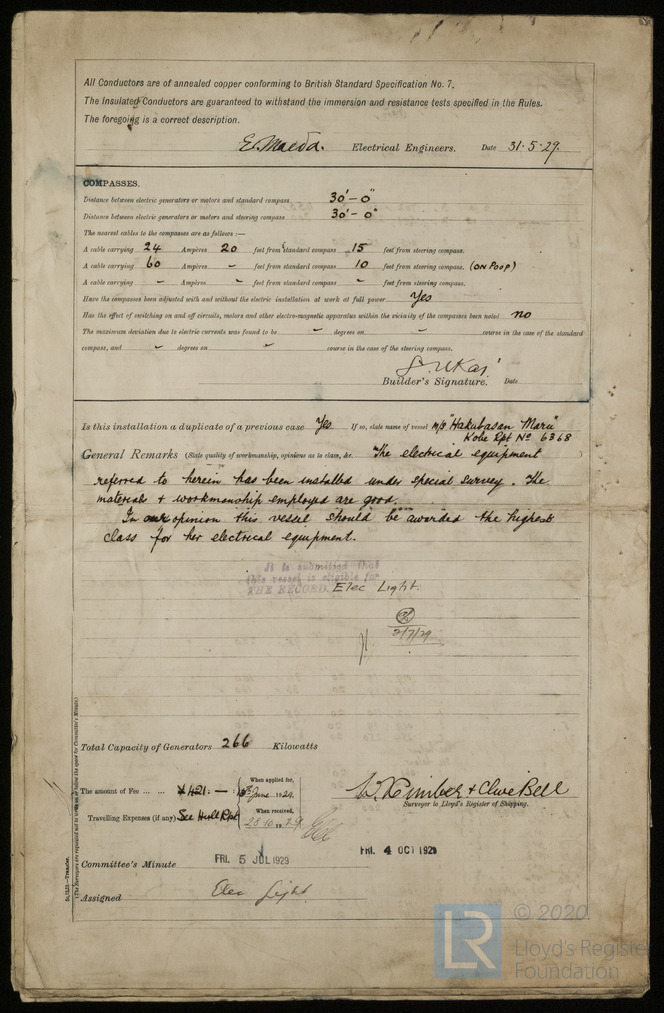 All Conductors are of annealed copper conforming to British Standard Specification No. 7.
The Insulated Conductors are guaranteed to withstand the immersion and resistance tests specified in the Rules.
The foregoing is a correct description.
E. Maeda. Electrical Engineers. Date 31·5·29.
COMPASSES.
Distance between electric generators or motors and standard compass 30'-0"
Distance between electric generators or motors and steering compass 30'-0"
The nearest cables to the compasses are as follows:—
A cable carrying 24 Ampères 20 feet from standard compass 15 feet from steering compass.
A cable carrying 60 Ampères - feet from standard compass 10 feet from steering compass. (ON POOP)
A cable carrying - Ampères - feet from standard compass - feet from steering compass.
Have the compasses been adjusted with and without the electric installation at work at full power Yes
Has the effect of switching on and off circuits, motors and other electro-magnetic apparatus within the vicinity of the compasses been noted no
The maximum deviation due to electric currents was found to be - degrees on - course in the case of the standard
compass, and - degrees on - course in the case of the steering compass.
Builder's Signature. Date
Is this installation a duplicate of a previous case Yes If so, state name of vessel M/S "Hakubasan Maru"
Kobe Rpt No 6368
General Remarks (State quality of workmanship, opinions as to class, &c. The electrical equipment
referred to herein has been installed under special survey. The
materials & workmanship employed are good.
In our opinion this vessel should be awarded the highest
class for her electrical equipment.
It is submitted that
this vessel is eligible for
THE RECORD. Elec Light.
2/7/29
Total Capacity of Generators 266 Kilowatts
The amount of Fee ... ... ¥421: — : When applied for, June 1929.
Travelling Expenses (if any) See Hull Rpt When received, 28·10·1929
W. Kimber & Clive Bell
Surveyor to Lloyd's Register of Shipping.
Committee's Minute FRI. 5 JUL 1929 FRI. 4 OCT 1929
Assigned Elec Light
© 2020
LR
Lloyd's Register
Foundation